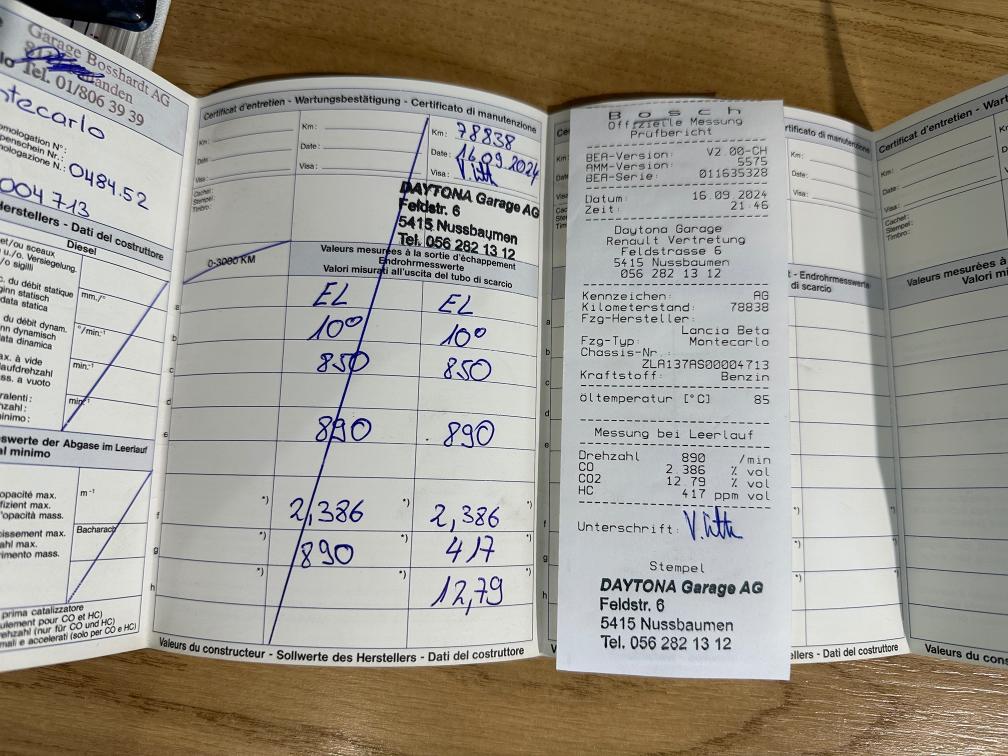 Garage Bosshardt AG
Tel. 01/806 39 39
0484.52
Herstellers - Dati del costruttore
Diesel
mm./°
°/min.-¹
min.-¹
min.-¹
swerte der Abgase im Leerlauf
al minimo
m-¹
Bacharach
prima catalizzatore
ulement pour CO et HC)
rehzahl (nur für CO und HC)
mali e accelerati (solo per CO e HC)
Certificat d'entretien - Wartungsbestätigung - Certificato di manutenzione
Km :
Date :
Visa :
Cachet :
Stempel :
Timbro :
Km :
Date :
Visa :
Km : 78838
Date : 16.09.2024
Visa :
DAYTONA Garage AG
Feldstr. 6
5415 Nussbaumen
Tel. 056 282 13 12
0-3000 KM
Valeurs mesurées à la sortie d'échappement
Endrohrmesswerte
Valori misurati all'uscita del tubo di scarico
EL EL
10° 10°
850 850
890 890
*) *) *)
2,386 2,386
*) *) *)
890 417
*) *)
12,79
Valeurs du constructeur - Sollwerte des Herstellers - Dati del costruttore
Bosch
Offizielle Messung
Prüfbericht
BEA-Version: V2.00-CH
AMM-Version: 5575
BEA-Serie: 011635328
Datum : 16.09.2024
Zeit : 21:46
Daytona Garage
Renault Vertretung
Feldstrasse 6
5415 Nussbaumen
056 282 13 12
Kennzeichen: AG
Kilometerstand: 78838
Fzg-Hersteller:
Lancia Beta
Fzg-Typ: Montecarlo
Chassis-Nr.:
ZLA137AS00004713
Kraftstoff: Benzin
Öltemperatur [°C] 85
Messung bei Leerlauf
Drehzahl 890 /min
CO 2.386 % vol
CO2 12.79 % vol
HC 417 ppm vol
Unterschrift:
Stempel
DAYTONA Garage AG
Feldstr. 6
5415 Nussbaumen
Tel. 056 282 13 12
rtificato di manutenzione
Km :
Date :
Visa :
- Endrohrmesswerte
di scarico
ellers - Dati del costruttore
Certificat d'entretien - Wart
Km :
Date :
Visa :
Cachet :
Stempel :
Timbro :
Valeurs mesurées à
Valeurs du cons